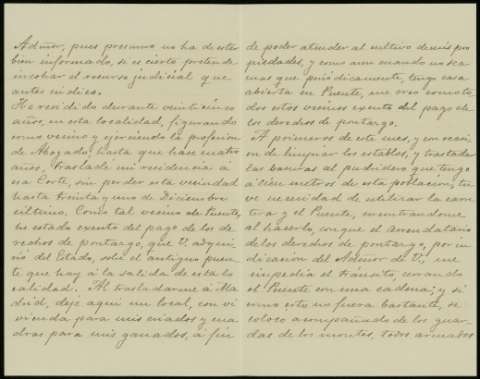 Admor, pues presumo no ha de estar
bien informado, si es cierto pretende
incohar el recurso judicial que
antes indico.
He residido durante veinticinco
años, en esta localidad, figurando
como vecino y ejerciendo la profesión
de Abogado, hasta que hace cuatro
años, trasladé mi residencia á
esa Corte, sin perder esta vecindad
hasta treinta y uno de Diciembre
último. Como tal vecino de Puente,
he estado exento del pago de los de
rechos de pontazgo, que V. adqui
rió del Estado, sobre el antiguo puen
te que hay á la salida de esta lo
calidad. Al trasladarme á Ma
drid, dejé aquí un local, con vi
vienda para mis criados y cua
dras para mis ganados, á fin
de poder atender al cultivo de mis pro
piedades, y como aun cuando no sea
mas que periódicamente, tengo casa
abierta en Puente, me creo como to
dos estos vecinos exento del pago de
los derechos de pontazgo.
A primeros de este mes, y con ocasi
on de limpiar los establos, y trasladar
las basuras al pudridero que tengo
á cien metros de esta población, tu
ve necesidad de utilizar la carre
tera y el Puente, encontrandome
al hacerlo, con que el arrendatario
de los derechos de pontazgo, por in
dicación del Admor de V., me
impedia el tránsito, cerrando
el Puente con una cadena; y si
como esto no fuera bastante, se
colocó acompañado de los guar
das de los montes, todos armados